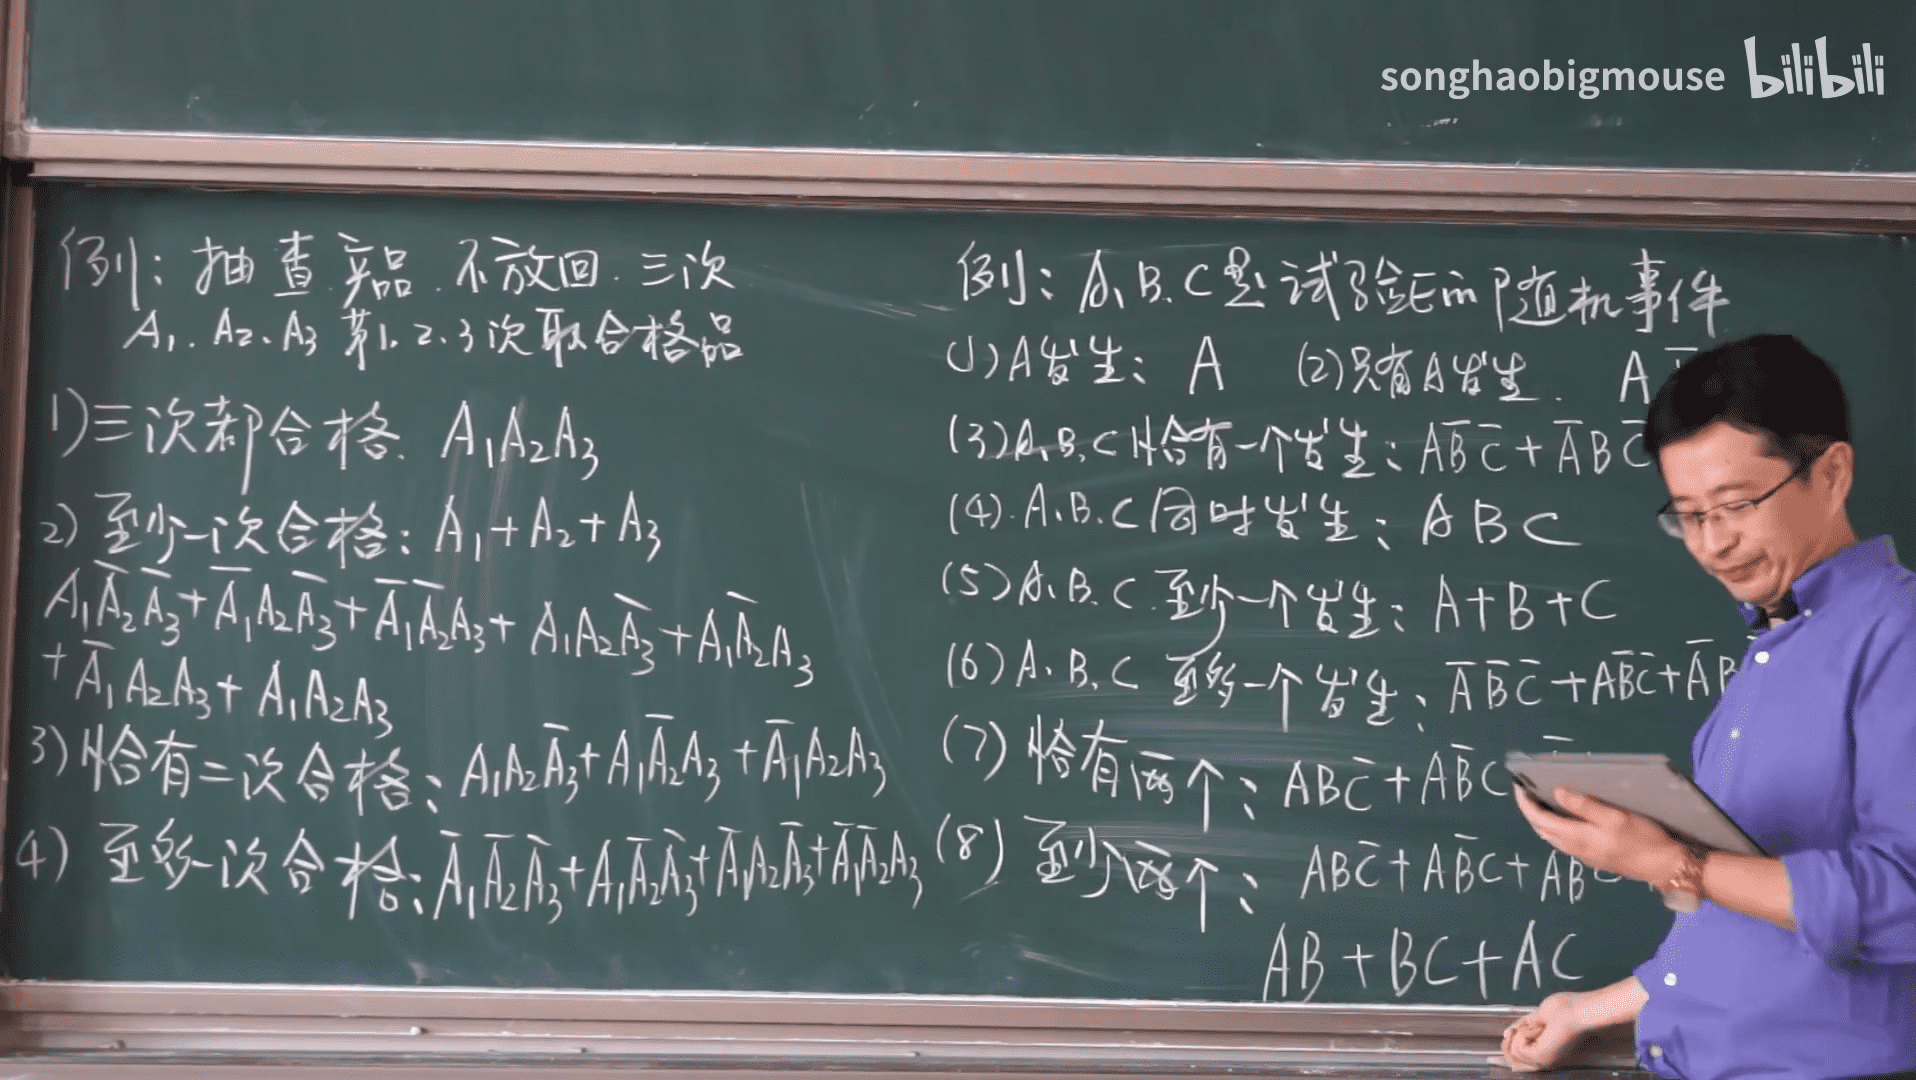 songhaobigmouse bilibili
例:抽查产品.不放回.三次
A₁.A₂、A₃ 第1.2.3次取合格品
1)三次都合格. A₁A₂A₃
2)至少一次合格:A₁+A₂+A₃
A₁A̅₂A̅₃+A̅₁A₂A̅₃+A̅₁A̅₂A₃+A₁A₂A̅₃+A₁A̅₂A₃
+A̅₁A₂A₃+A₁A₂A₃
3)恰有二次合格:A₁A₂A̅₃+A₁A̅₂A₃+A̅₁A₂A₃
4)至多一次合格:A̅₁A̅₂A̅₃+A₁A̅₂A̅₃+A̅₁A₂A̅₃+A̅₁A̅₂A₃
例:A、B.C是试验E的随机事件
(1)A发生:A (2)只有A发生. A
(3)A.B.C恰有一个发生:AB̅C̅+A̅BC̅
(4).A.B.C同时发生:ABC
(5)A.B.C.至少一个发生:A+B+C
(6)A.B.C 至多一个发生:A̅B̅C̅+AB̅C̅+A̅B
(7)恰有两个:ABC̅+AB̅C
(8)至少两个:ABC̅+AB̅C+A̅BC
AB+BC+AC